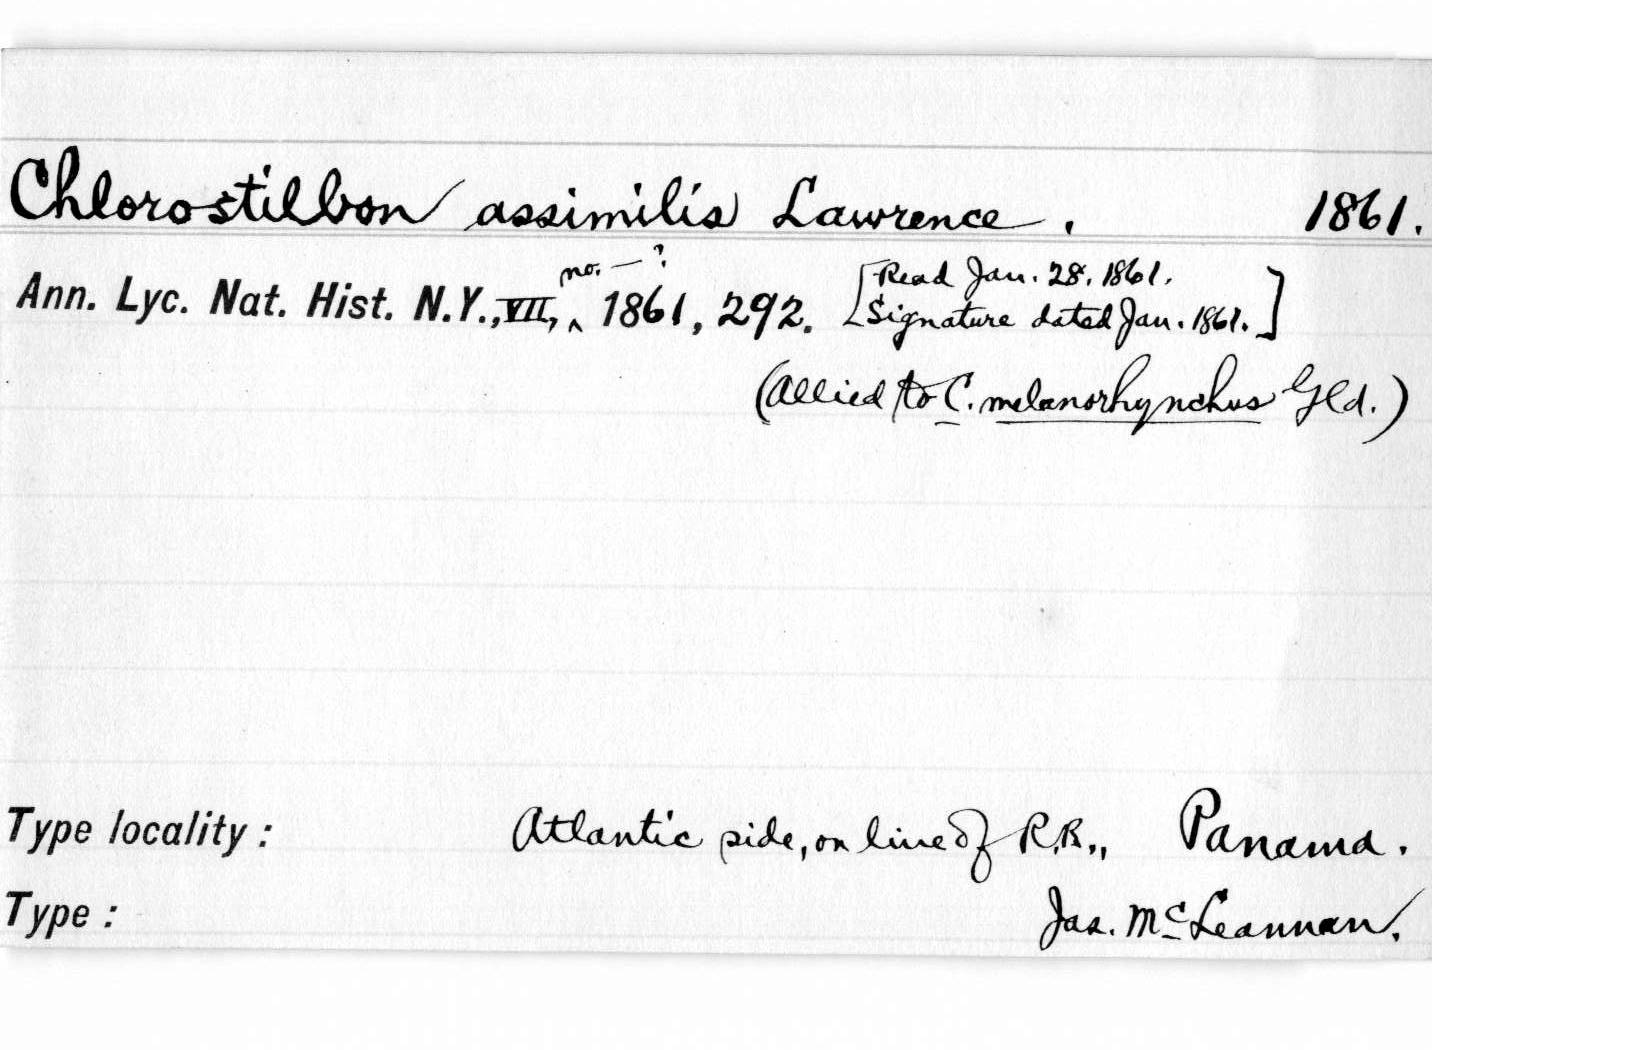 Chlorostilbon assimilis Lawrence. 1861.
Ann. Lyc. Nat. Hist. N.Y., VII, ^ no. — ? 1861, 292. [Read Jan. 28, 1861.
Signature dated Jan. 1861.]
(Allied to C. melanorhynchus Gld.)
Type locality: Atlantic side, on line of R.R., Panama.
Type: Jas. McLeannan.